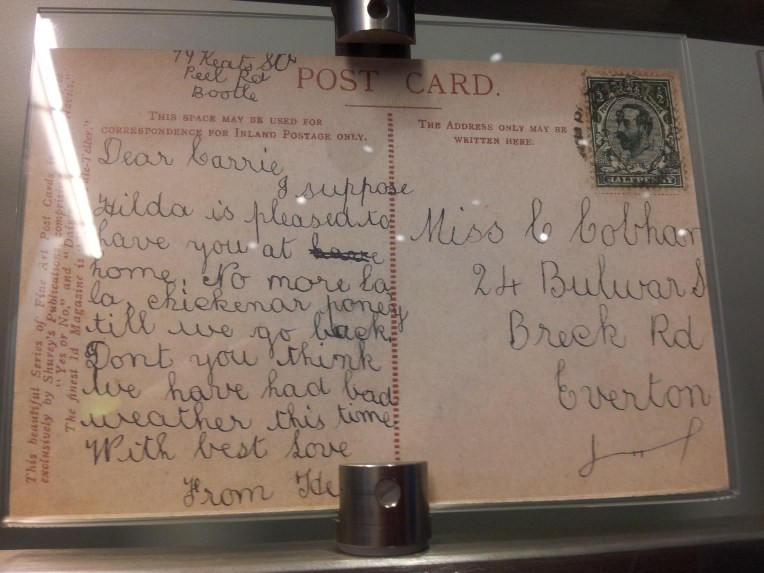 74 Keats St
Peel Rd
Bootle
POST CARD.
THIS SPACE MAY BE USED FOR
CORRESPONDENCE FOR INLAND POSTAGE ONLY.
THE ADDRESS ONLY MAY BE
WRITTEN HERE.
Dear Carrie
I suppose
Hilda is pleased to
have you at
home. No more la
la, chickenar poney
till we go back.
Dont you think
we have had bad
weather this time.
With best Love
From
Miss C Cobham
24 Bulwar S
Breck Rd
Everton
HALFPENNY
This beautiful Series of Fine Art Post Cards is
exclusively by Shurey's Publications, comprising
"Yes or No," and
The finest 1d Magazine is